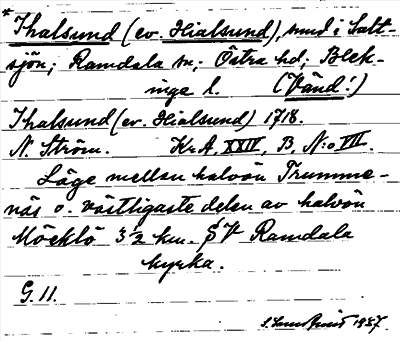 * Thalsund (ev. Hialsund), sund i Salt-
sjön; Ramdala sn; Östra hd; Blek-
inge l. (Vänd!)
Thalsund (ev. Hialsund) 1718.
N. Ström. KrA, XXIV, B, N:o VII
Läge mellan halvön Trumme-
näs o. västligaste delen av halvön
Möcklö 3½ km. SV Ramdala
kyrka.
G. 11.
1937